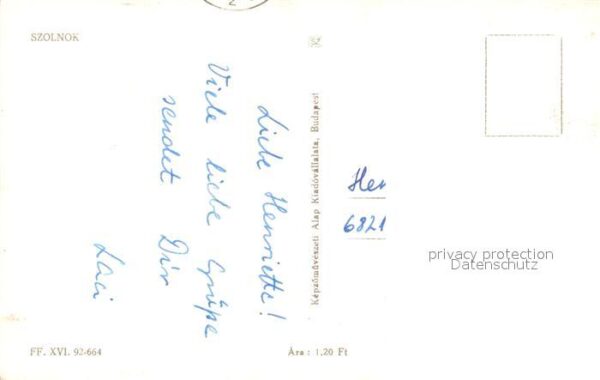 SZOLNOK
Liebe Henriette!
Viele liebe Grüße
sendet Dir
Laci
Képzőművészeti Alap Kiadóvállalata, Budapest
6821
privacy protection
Datenschutz
FF. XVI. 92-664
Ára : 1,20 Ft